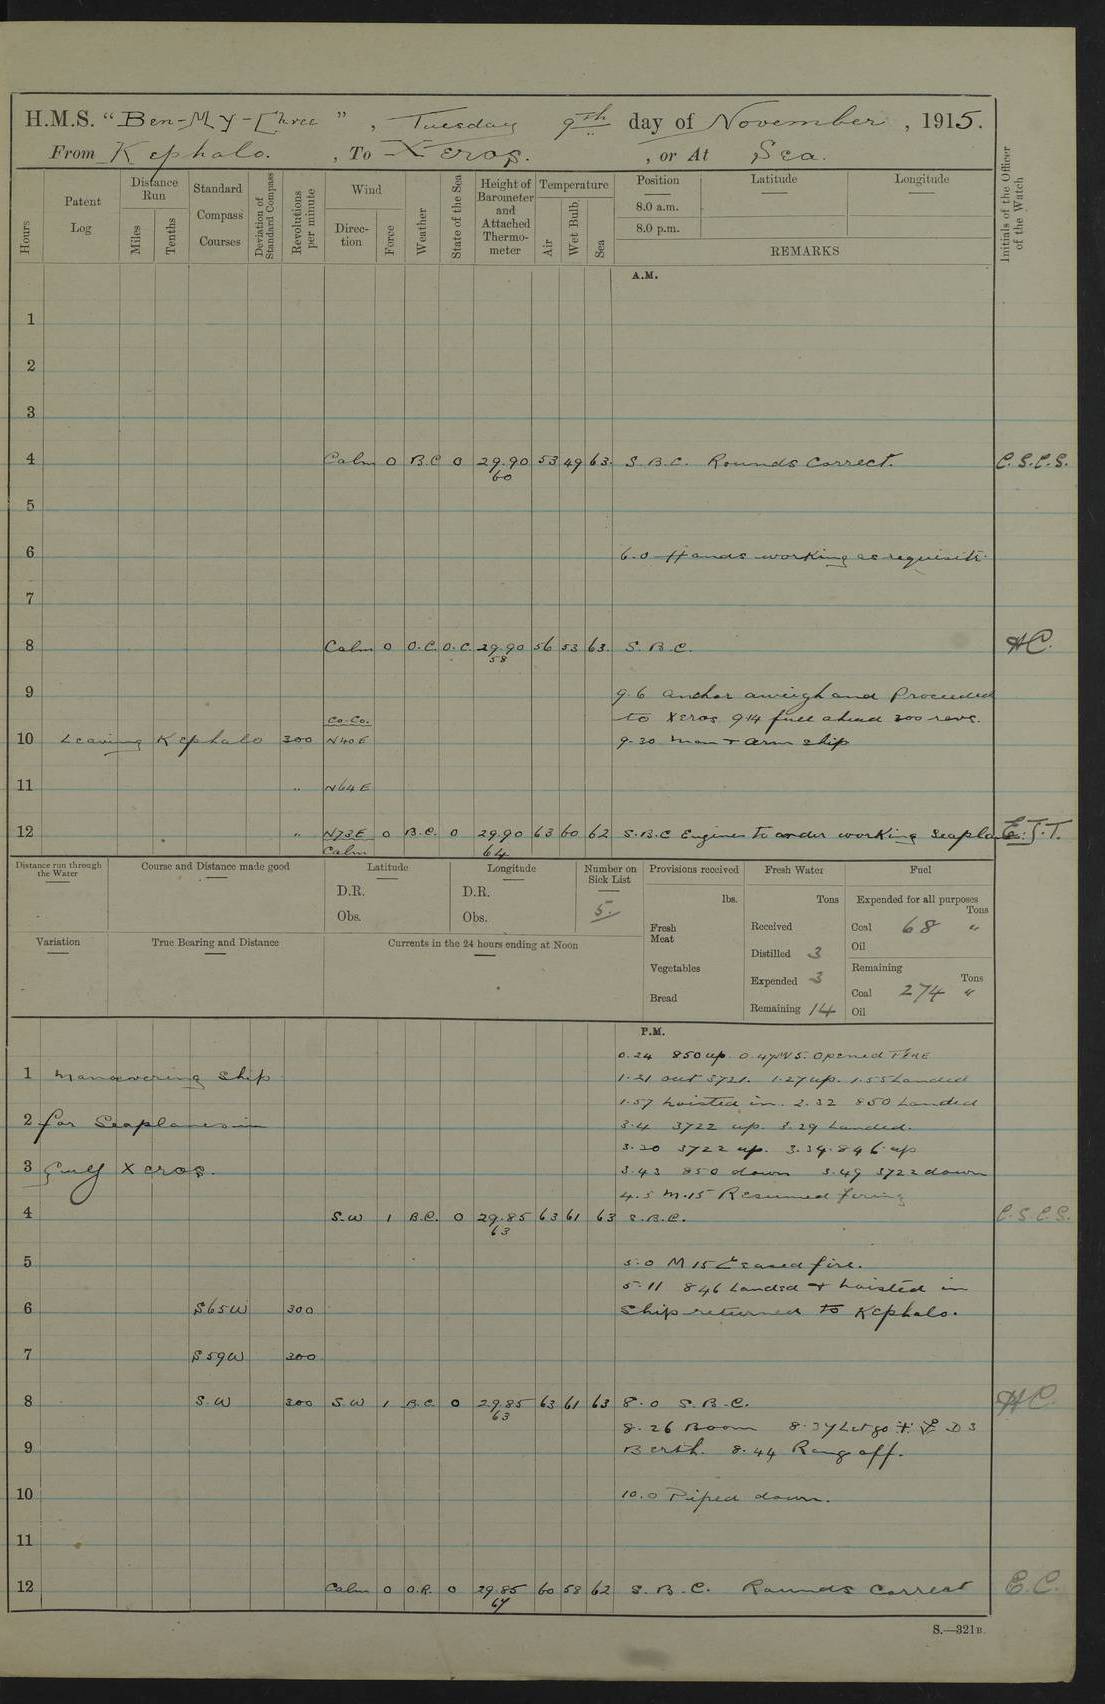 H.M.S. "Ben-My-Chree", Tuesday 9th day of November, 1915.
From Kephalo. , To Xeros. , or At Sea.
Hours
Patent Log
Distance Run
Miles
Tenths
Standard Compass Courses
Deviation of Standard Compass
Revolutions per minute
Wind
Direction
Force
Weather
State of the Sea
Height of Barometer and Attached Thermometer
Temperature
Air
Wet Bulb
Sea
Position
Latitude
Longitude
8.0 a.m.
8.0 p.m.
REMARKS
Initials of the Officer of the Watch
A.M.
1
2
3
4 Calm 0 B.C 0 29.90 53 49 63. S.B.C. Rounds Correct. C.S.C.S.
60
5
6 6.0 Hands working as requisite
7
8 Calm 0 O.C. O.C. 29.90 56 53 63 S.B.C. HC.
58
9 9.6 anchor aweigh and Proceeded
Co. Co. to Xeros 9.14 full ahead 300 revs.
10 Leaving Kephalo 300 N40E 9.30 man + arm ship
11 " N64E
12 " N73E 0 B.C. 0 29.90 63 60 62 S.B.C Engines to order working Seaplanes E.J.T.
Calm 64
Distance run through the Water
Course and Distance made good
Latitude
D.R.
Obs.
Longitude
D.R.
Obs.
Number on Sick List
5.
Provisions received
lbs.
Fresh Meat
Vegetables
Bread
Fresh Water
Tons
Received
Distilled 3
Expended 3
Remaining 14
Fuel
Expended for all purposes
Tons
Coal 68 "
Oil
Remaining
Tons
Coal 274 "
Oil
Variation
True Bearing and Distance
Currents in the 24 hours ending at Noon
P.M.
0.24 850 up 0.47 M15. Opened FIRE
1 Manœvering ship 1.21 out 3721. 1.27 up. 1.55 Landed
1.57 hoisted in. 2.32 850 Landed
2 for Seaplanes in 3.4 3722 up. 3.29 Landed.
3.30 3722 up. 3.39. 846 up
3 Gulf Xeros. 3.43 850 down 3.49 3722 down
4.5 M.15 Resumed firing
4 S.W 1 B.C. 0 29.85 63 61 63 S.B.C. C.S.C.S.
63
5 5.0 M15 Ceased fire.
5.11 846 Landed + hoisted in
6 S65W 300 Ship returned to Kephalo.
7 S59W 300
8 S.W 300 S.W 1 B.C. 0 29.85 63 61 63 8.0 S.B.C. HC.
63
8.26 Boom 8.37 Let go D3
9 Berth. 8.44 Rang off.
10 10.0 Piped down.
11
12 Calm 0 O.R. 0 29.85 60 58 62 S.B.C. Rounds Correct E.C.
64
S.—321B.